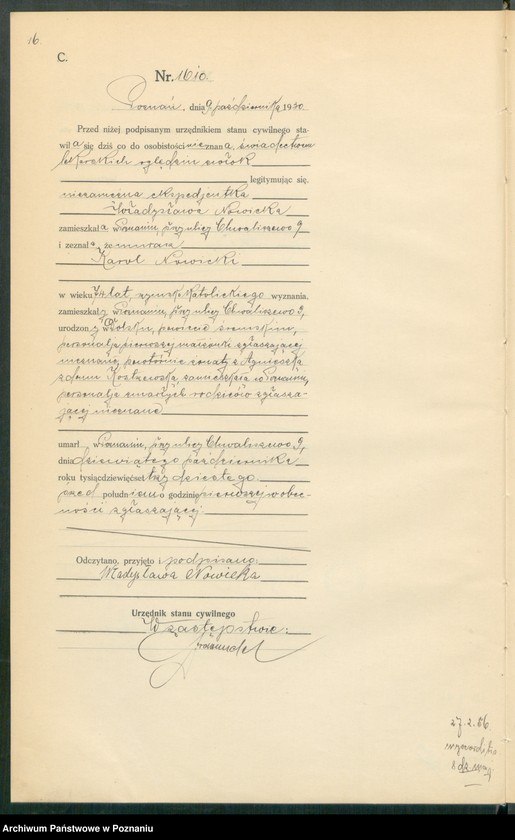 16.
C.
Nr. 1610.
Poznań, dnia 9 października 1930
Przed niżej podpisanym urzędnikiem stanu cywilnego sta-
wiła się dziś co do osobistości nieznana, świadectwem
lekarskich oględzin zwłok
legitymując się,
niezamężna ekspedjentka
Władysława Nowicka
zamieszkała w Poznaniu, przy ulicy Chwaliszewo 9
i zeznała, że murarz
Karol Nowicki
w wieku 74 lat, rzymsko katolickiego wyznania,
zamieszkały w Poznaniu, przy ulicy Chwaliszewo 9,
urodzony w powiecie śremskim,
personalja pierwszej małżonki zgłaszającej
nieznane, powtórnie żonaty z Agnieszką
z domu zamieszkałą w Poznaniu,
personalja zmarłych rodziców zgłasza-
jącej nieznane
umarł w Poznaniu, przy ulicy Chwaliszewo 9,
dnia dziewiątego października
roku tysiącdziewięćset trzydziestego
przed południem o godzinie pierwszej w obec-
ności zgłaszającej.
Odczytano, przyjęto i podpisano:
Władysława Nowicka
Urzędnik stanu cywilnego
W zastępstwie:
27.2.86
Archiwum Państwowe w Poznaniu